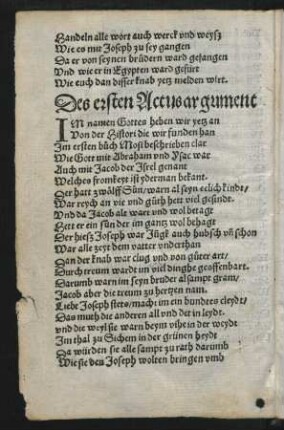 Handeln alle wort auch werck vnd weyß
Wie es mit Joseph zu sey gangen
Da er von seynen brüdern ward gefangen
Vnd wie er in Egypten ward gefürt
Wie euch dan disser knab yetz melden wirt.
Des ersten Actus argument
IM namen Gottes heben wir yetz an
Von der Histori die wir funden han
Im ersten bůch Mosi beschrieben clar
Wie Gott mit Abraham vnd Ysac war
Auch mit Jacob der Jsrel genant
Welches fromkeyt ist yderman bekant.
Der hatt zwölff Sün/ warn al seyn eelich kindt/
War reych an vie vnd gůth hett viel gesindt.
Vnd da Jacob alt wart vnd wol betagt
Hett er ein sün der im gantz wol behagt
Der hieß Joseph war Jügk auch hubsch vñ schon
War alle zeyt dem vatter vnderthan
Dan der knab war clug vnd von gůter art/
Durch treum wardt im viel dinghe geoffenbart.
Darumb warn im seyn bruder alsampt gram/
Jacob aber die treum zu hertzen nam.
Liebt Joseph stets/ macht im ein bundtes cleydt/
Das muth die anderen all vnd det in leydt.
vnd die weyl sie warn beym vihe in der weydt
Im thal zu Sichem in der grünen heydt
Da würden sie alle sampt zu rath darumb
Wie sie den Joseph wolten bringen vmb